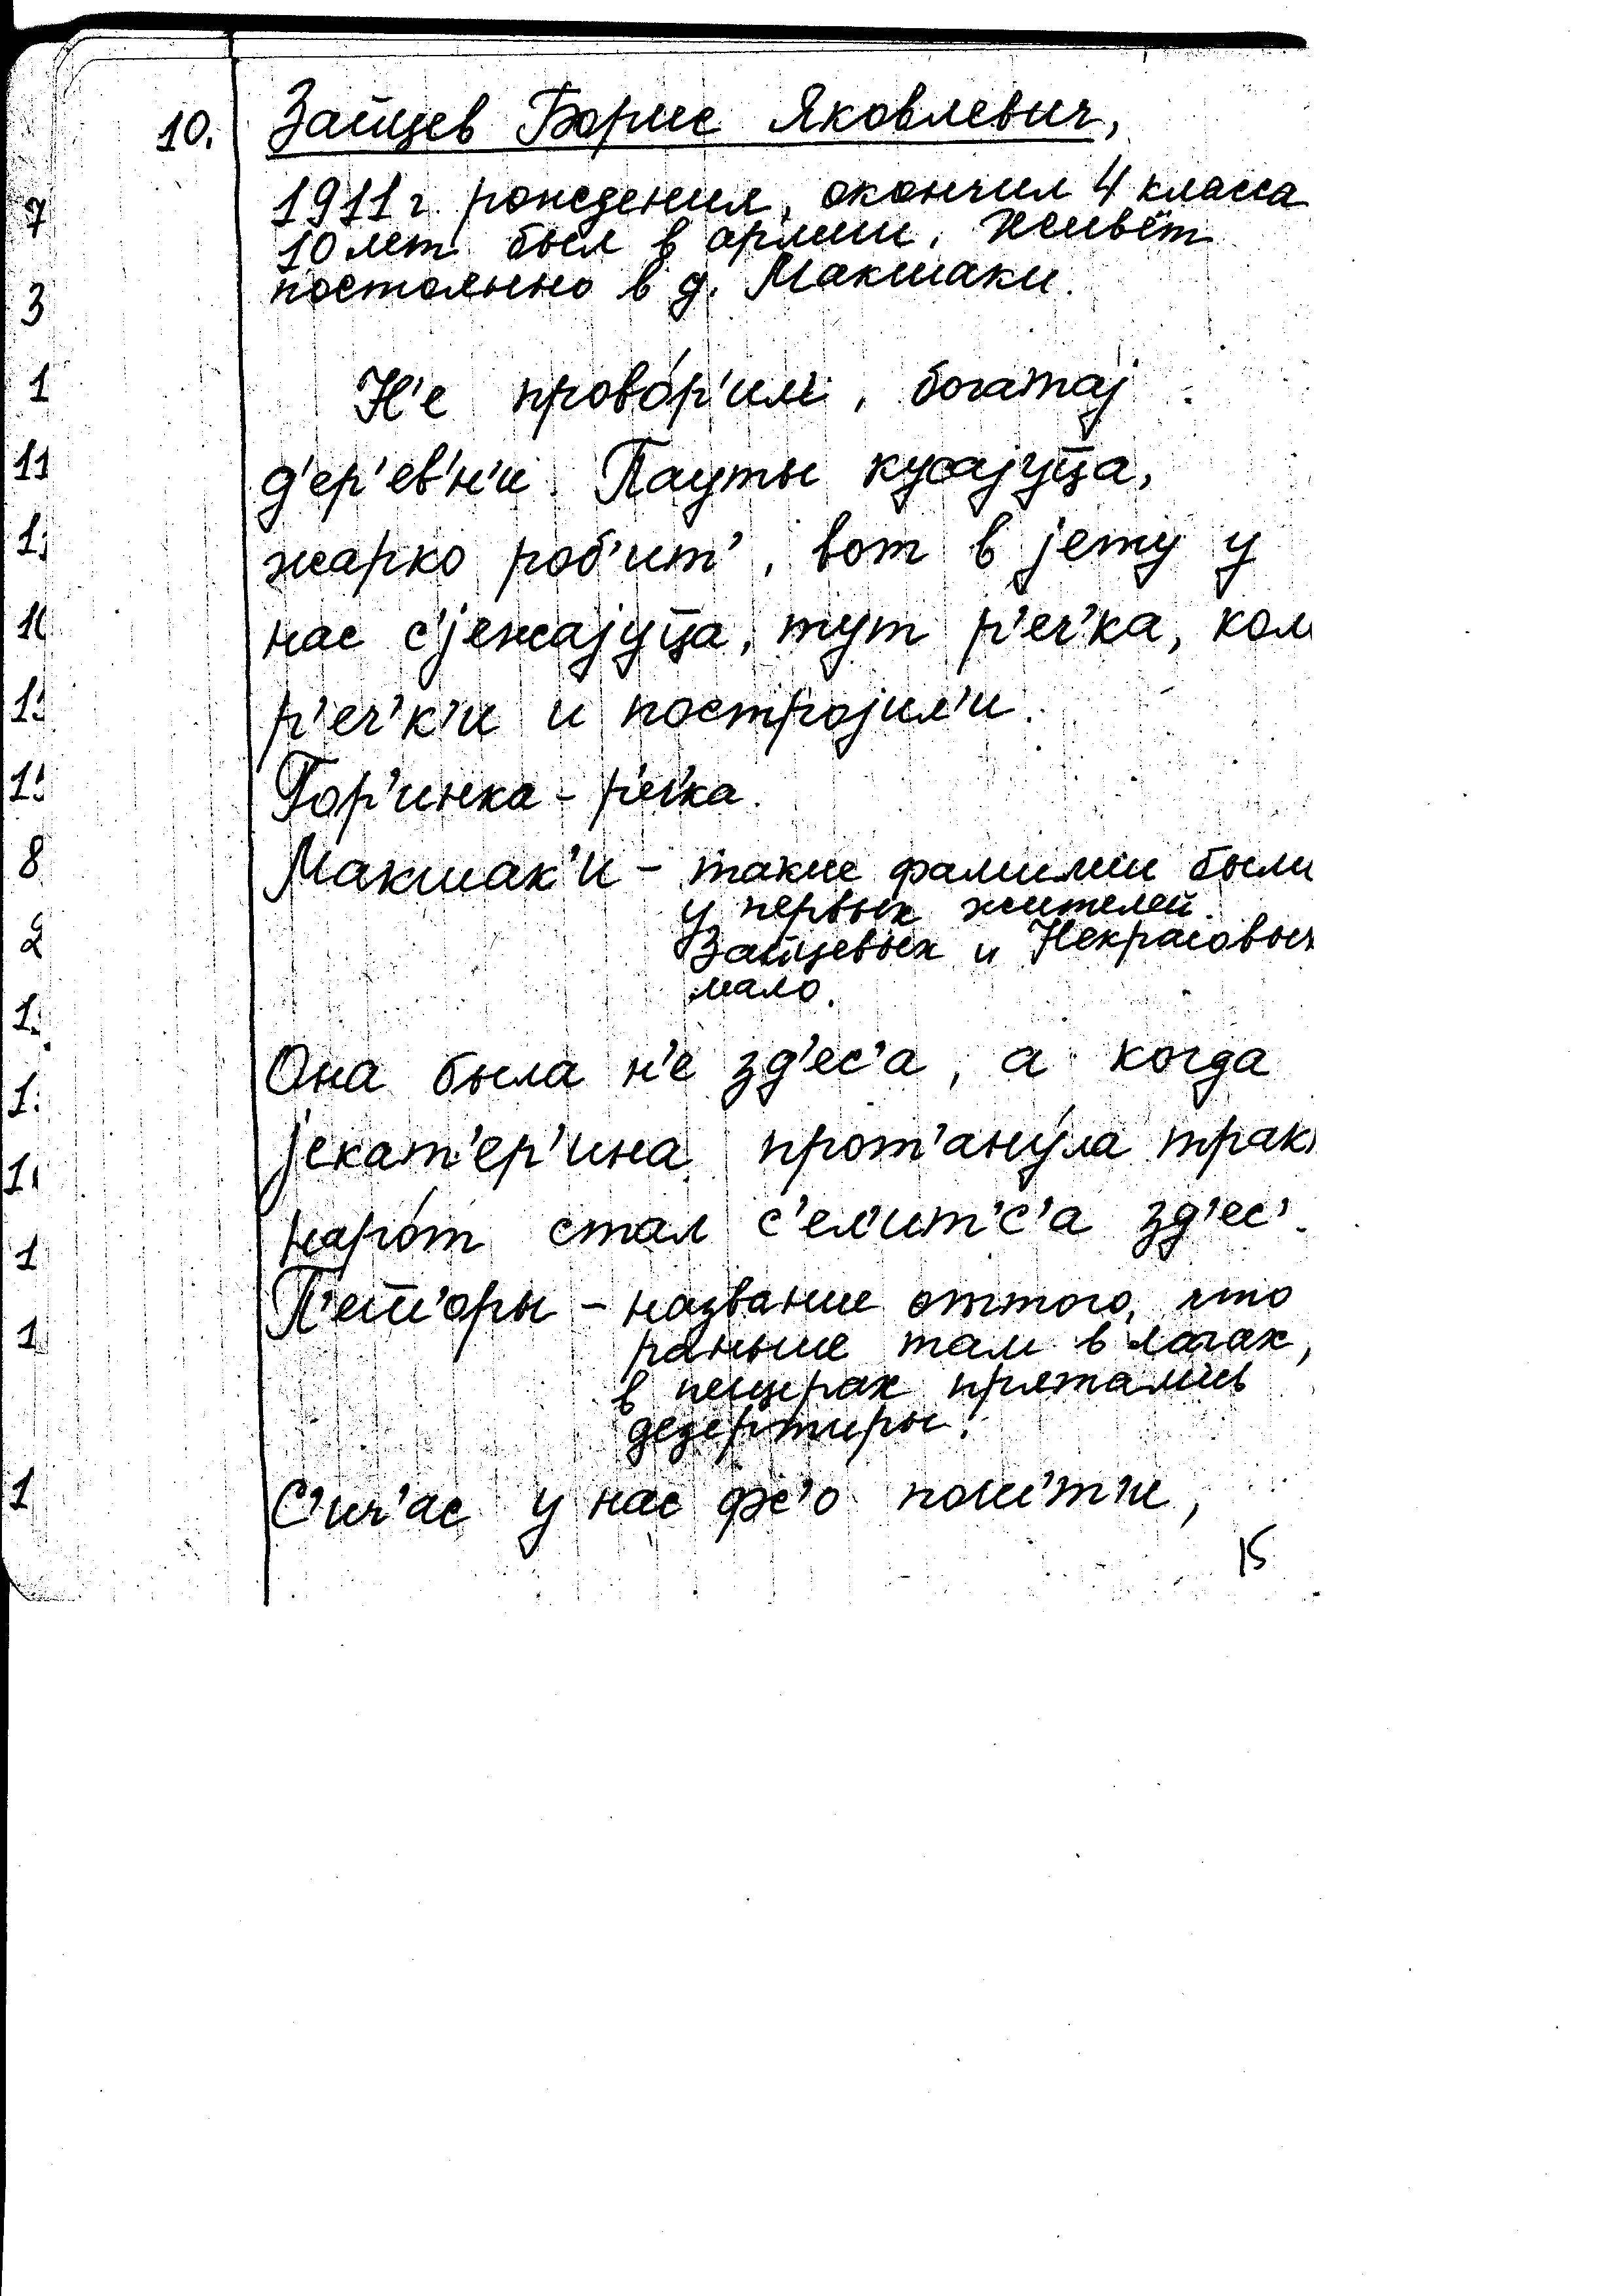 10. Зайцев Борис Яковлевич,
7
1911 г. рождения, окончил 4 класса
10 лет был в армии. Живёт
3
постоянно в д. Макшаки.
1
Н'е провор'им, богатај
11
д'ер'ев'н'и. Пауты кусајуца,
жарко роб'ит', вот в јету у
нас с'јежајуца, тут р'еч'ка, кол
р'еч'к'и и постројил'и.
Гор'инка - р'еч'ка.
8
Макшак'и - такие фамилии были
у первых жителей.
2
Зайцевых и Некрасовых
мало.
Она была н'е зд'ес'а, а когда
јекат'ер'ина прот'ану́ла трак
наро́т стал с'ел'ит'с'а зд'ес'.
1
название оттого, что
1
раньше там в логах,
в пещерах прятались
дезертиры.
1
С'ич'ас у нас фс'о
15